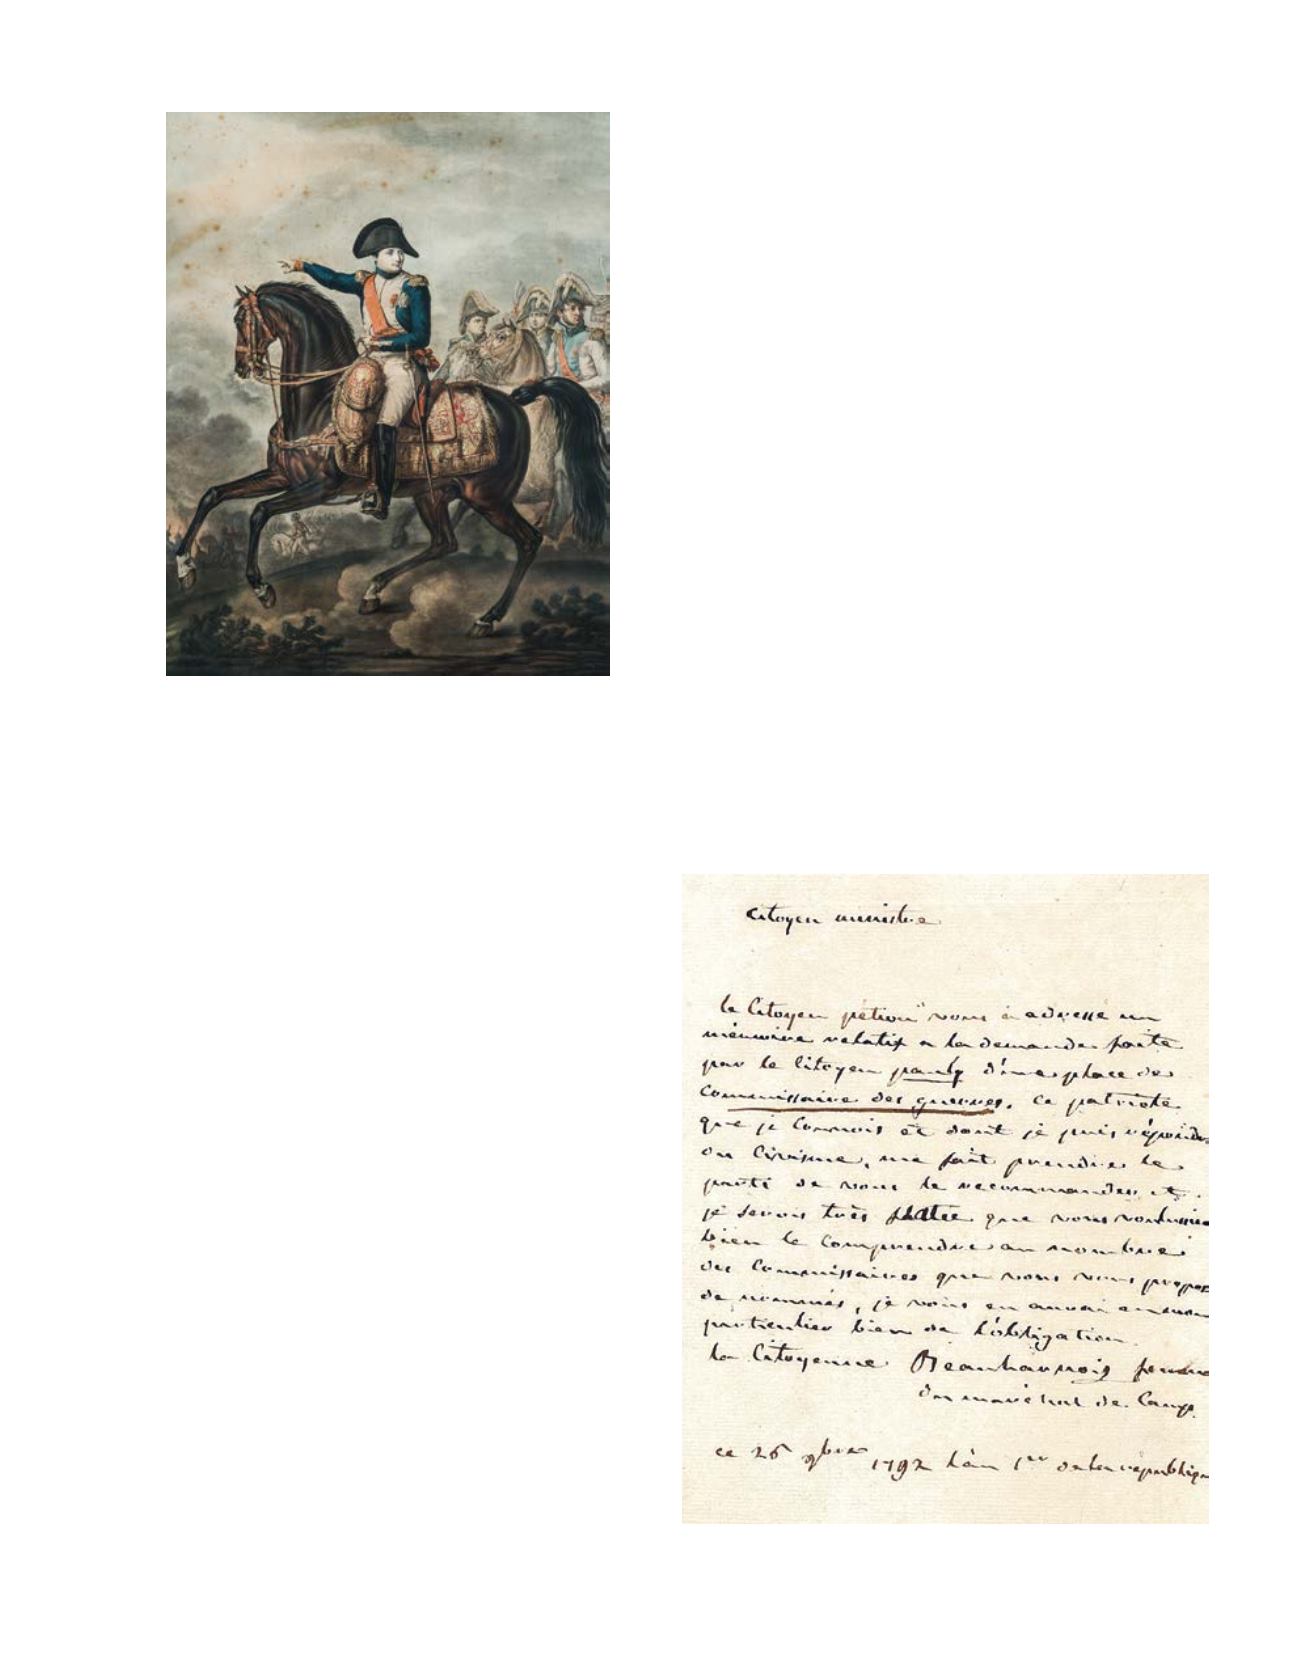 Citoyen ministre
le Citoyen pétion vous à adressé un
mémoire relatif a la demande faite
par le Citoyen pauly d'une place de
Commissaire des guerres. Ce patriote
que je Connois et dont je puis répondre
du Civisme, me fait prendre le
parti de vous le recommander et
je serois très flattée que vous voulussiez
bien le Comprendre au nombre
des Commissaires que vous vous propos
de nommés, je vous en aurai en mon
particulier bien de l'obligation
la Citoyenne Beauharnois femme
du maréchal de Camp.
ce 26 9bre 1792 l'an 1er de la républiq